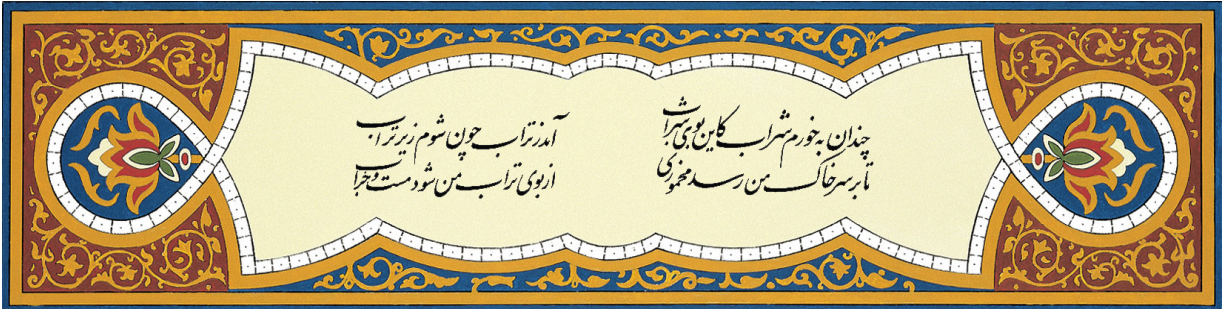 چندان به خورم شراب کاین بوی شراب آید ز تراب چون شوم زیر تراب
تا بر سر خاک من رسد مخموری از بوی تراب من شود مست و خراب